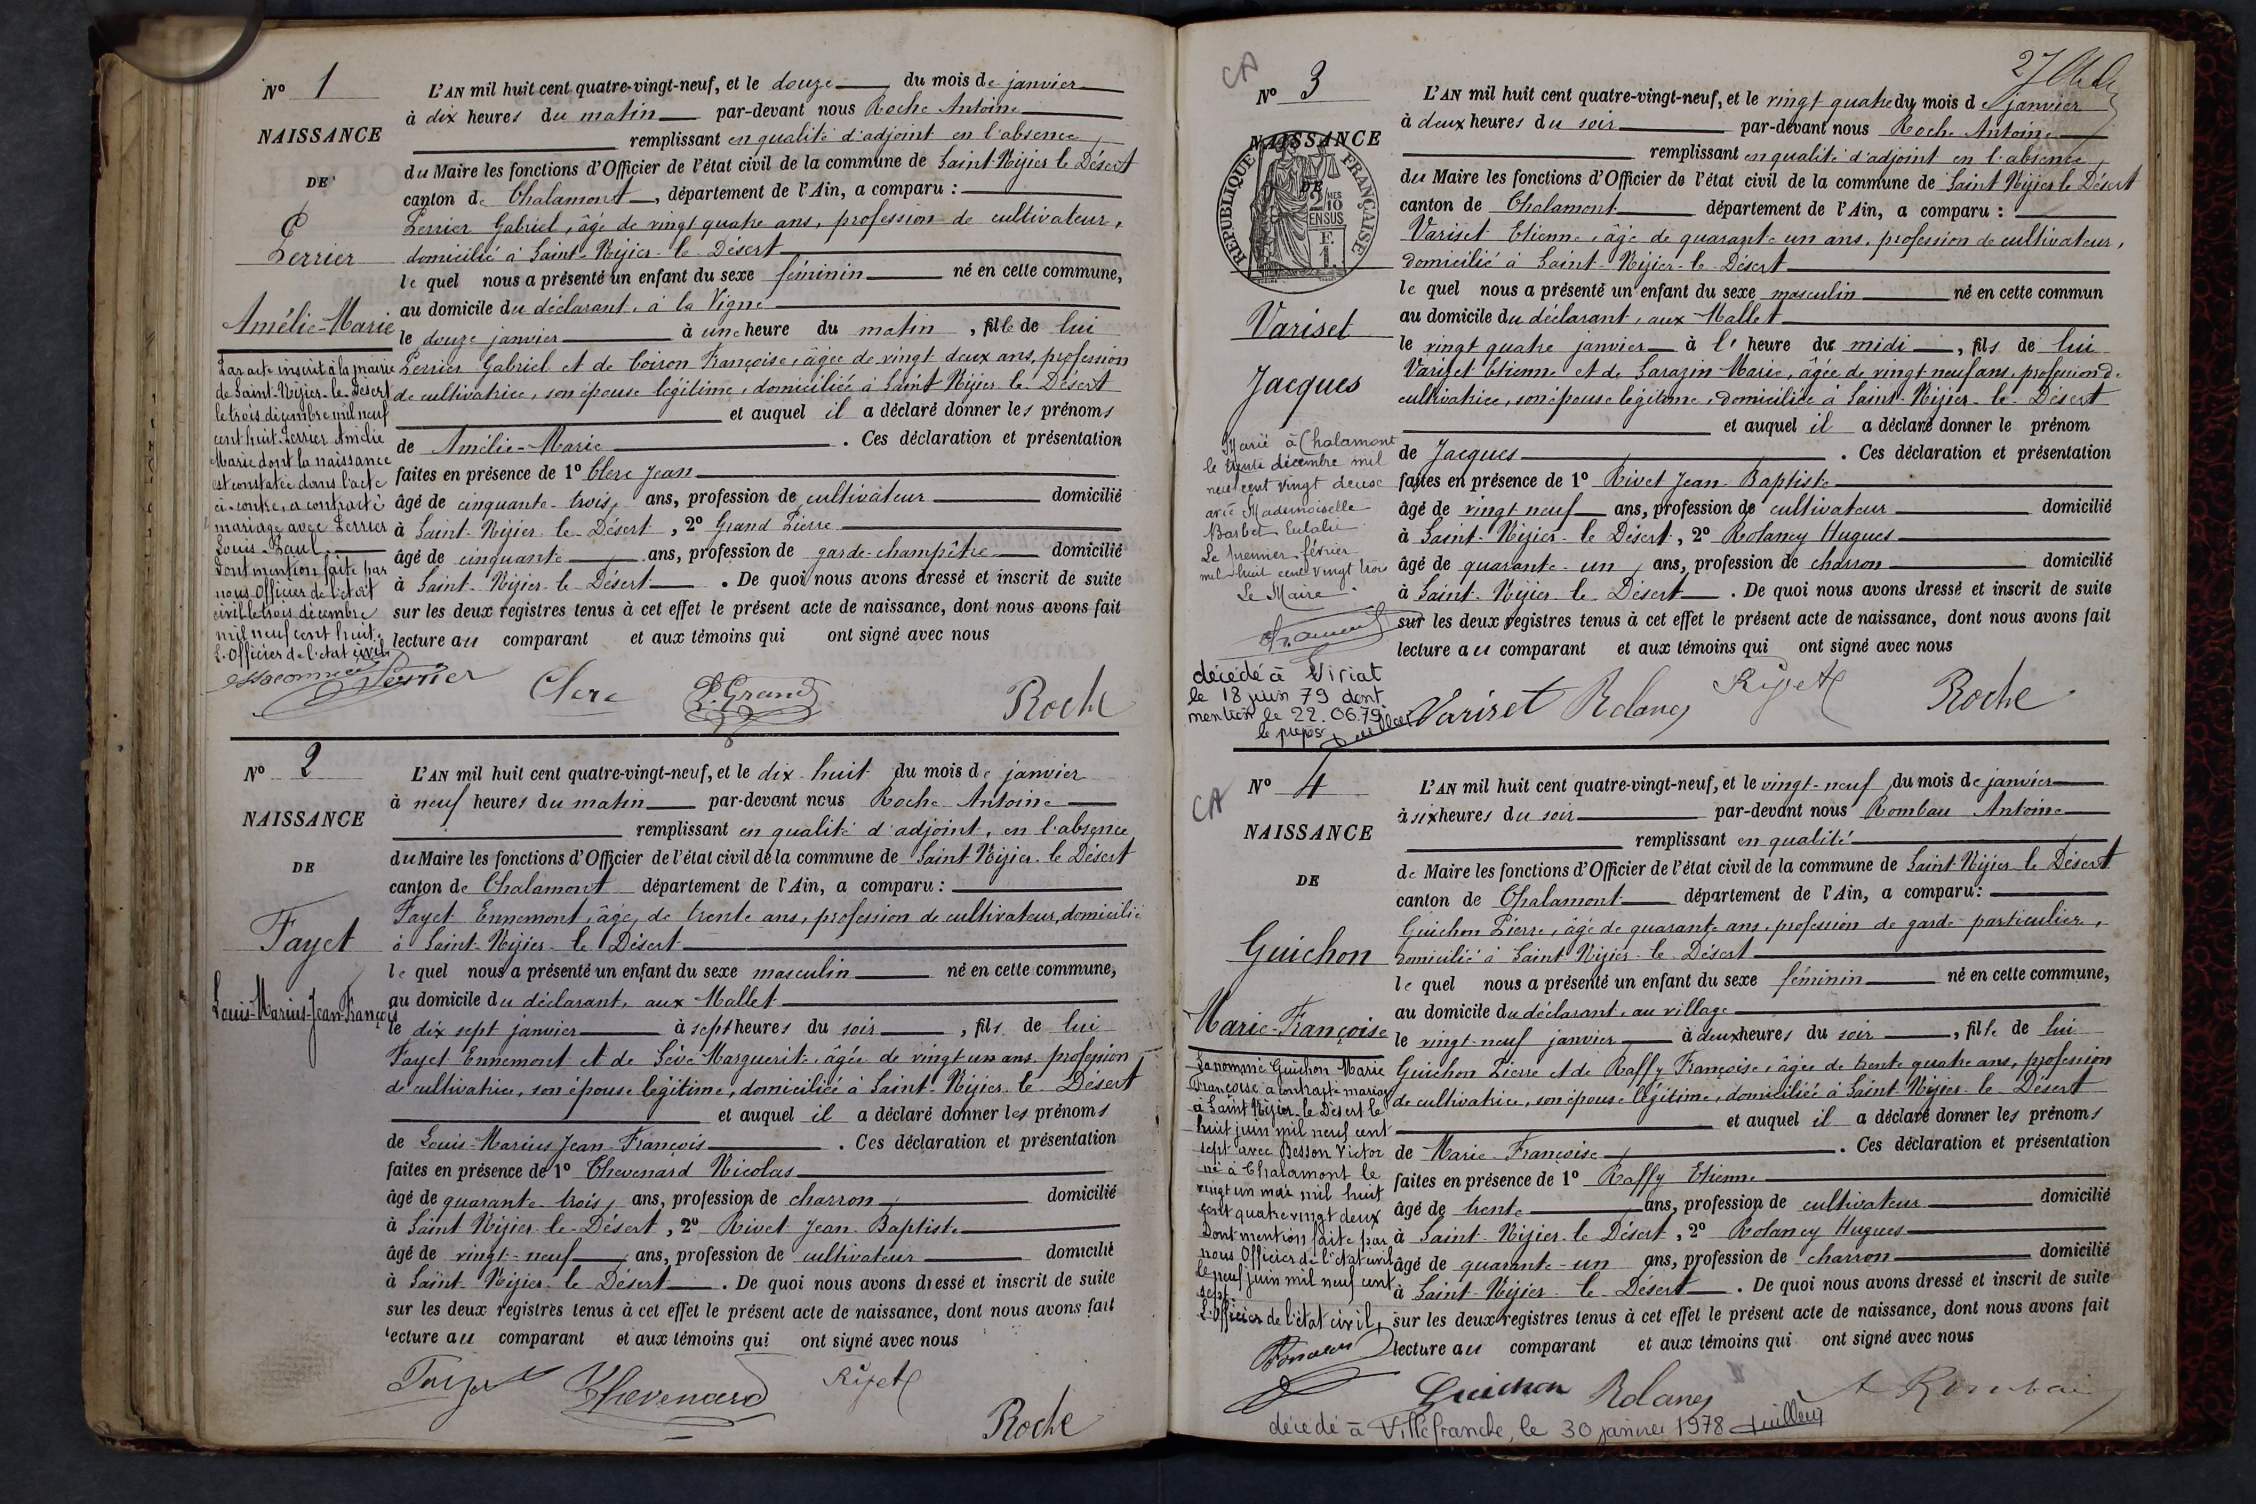 N° 1
NAISSANCE
DE
Perrier
Amélie-Marie
L'AN mil huit cent quatre-vingt-neuf, et le douze du mois de janvier
à dix heures du matin par-devant nous Roche Antoine
remplissant en qualité d'adjoint en l'absence
du Maire les fonctions d'Officier de l'état civil de la commune de Saint-Nizier le Désert
canton de Chalamont, département de l'Ain, a comparu :
Perrier Gabriel, âgé de vingt quatre ans, profession de cultivateur,
domicilié à Saint-Nizier-le-Désert
le quel nous a présenté un enfant du sexe féminin né en cette commune,
au domicile du déclarant, à la Vigne
le douze janvier à une heure du matin, fille de lui
Perrier Gabriel et de Coiron Françoise, âgée de vingt deux ans, profession
de cultivatrice, son épouse légitime, domiciliée à Saint Nizier le Désert
et auquel il a déclaré donner les prénoms
de Amélie-Marie. Ces déclaration et présentation
faites en présence de 1° Clerc Jean
âgé de cinquante-trois ans, profession de cultivateur domicilié
à Saint-Nizier-le-Désert, 2° Grand Pierre
âgé de cinquante ans, profession de garde-champêtre domicilié
à Saint-Nizier-le-Désert. De quoi nous avons dressé et inscrit de suite
sur les deux registres tenus à cet effet le présent acte de naissance, dont nous avons fait
lecture au comparant et aux témoins qui ont signé avec nous
Par acte inscrit à la mairie
de Saint-Nizier-le-Désert
le trois décembre mil neuf
cent huit Perrier Amélie
Marie dont la naissance
est constatée dans l'acte
ci-contre, a contracté
mariage avec Perrier
Louis-Paul.
Dont mention faite par
nous Officier de l'état
civil le trois décembre
mil neuf cent huit.
L'Officier de l'état civil
Perrier Clerc P. Grand Roche
N° 2
NAISSANCE
DE
Fayet
Louis-Marius-Jean-François
L'AN mil huit cent quatre-vingt-neuf, et le dix-huit du mois de janvier
à neuf heures du matin par-devant nous Roche Antoine
remplissant en qualité d'adjoint, en l'absence
du Maire les fonctions d'Officier de l'état civil de la commune de Saint-Nizier-le Désert
canton de Chalamont département de l'Ain, a comparu :
Fayet Ennemont, âgé de trente ans, profession de cultivateur, domicilié
à Saint-Nizier-le Désert
le quel nous a présenté un enfant du sexe masculin né en cette commune,
au domicile du déclarant, aux Mallet
le dix sept janvier à sept heures du soir, fils de lui
Fayet Ennemont et de Sève Marguerite, âgée de vingt un ans, profession
de cultivatrice, son épouse légitime, domiciliée à Saint-Nizier-le-Désert
et auquel il a déclaré donner les prénoms
de Louis-Marius Jean-François. Ces déclaration et présentation
faites en présence de 1° Thevenard Nicolas
âgé de quarante-trois ans, profession de charron domicilié
à Saint Nizier-le-Désert, 2° Rivet Jean-Baptiste
âgé de vingt-neuf ans, profession de cultivateur domicilié
à Saint-Nizier-le-Désert. De quoi nous avons dressé et inscrit de suite
sur les deux registres tenus à cet effet le présent acte de naissance, dont nous avons fait
lecture au comparant et aux témoins qui ont signé avec nous
Fayet Thevenard Rivet
Roche
CA
27
N° 3
NAISSANCE
DE
REPUBLIQUE FRANÇAISE
2/10
EN SUS
Variset
Jacques
L'AN mil huit cent quatre-vingt-neuf, et le vingt quatre du mois de janvier
à deux heures du soir par-devant nous Roche Antoine
remplissant en qualité d'adjoint en l'absence
du Maire les fonctions d'Officier de l'état civil de la commune de Saint Nizier le Désert
canton de Chalamont département de l'Ain, a comparu :
Variset Etienne, âgé de quarante un ans, profession de cultivateur,
domicilié à Saint-Nizier-le-Désert
le quel nous a présenté un enfant du sexe masculin né en cette commun
au domicile du déclarant, aux Mallet
le vingt quatre janvier à l' heure de midi, fils de lui
Variset Etienne et de Sarazin Marie, âgée de vingt neuf ans, profession de
cultivatrice, son épouse légitime, domiciliée à Saint-Nizier-le-Désert
et auquel il a déclaré donner le prénom
de Jacques. Ces déclaration et présentation
faites en présence de 1° Rivet Jean-Baptiste
âgé de vingt neuf ans, profession de cultivateur domicilié
à Saint-Nizier-le Désert, 2° Rolancy Hugues
âgé de quarante-un ans, profession de charron domicilié
à Saint-Nizier-le-Désert. De quoi nous avons dressé et inscrit de suite
sur les deux registres tenus à cet effet le présent acte de naissance, dont nous avons fait
lecture au comparant et aux témoins qui ont signé avec nous
Marié à Chalamont
le trente décembre mil
neuf cent vingt deux
avec Mademoiselle
Barbet Eulalie
Le premier février
mil huit cent vingt trois
Le Maire
décédé à Viriat
le 18 juin 79 dont
mention le 22.06.79
le préposé
Variset Rolancy Rivet Roche
CA
N° 4
NAISSANCE
DE
Guichon
Marie-Françoise
L'AN mil huit cent quatre-vingt-neuf, et le vingt-neuf du mois de janvier
à six heures du soir par-devant nous Rombau Antoine
remplissant en qualité
de Maire les fonctions d'Officier de l'état civil de la commune de Saint-Nizier le Désert
canton de Chalamont département de l'Ain, a comparu :
Guichon Pierre, âgé de quarante ans, profession de garde-particulier,
domicilié à Saint Nizier-le-Désert
le quel nous a présenté un enfant du sexe féminin né en cette commune,
au domicile du déclarant, au village
le vingt-neuf janvier à deux heures du soir, fille de lui
Guichon Pierre et de Raffy Françoise, âgée de trente quatre ans, profession
de cultivatrice, son épouse légitime, domiciliée à Saint-Nizier-le-Désert
et auquel il a déclaré donner les prénoms
de Marie-Françoise. Ces déclaration et présentation
faites en présence de 1° Raffy Etienne
âgé de trente ans, profession de cultivateur domicilié
à Saint-Nizier-le Désert, 2° Rolancy Hugues
âgé de quarante-un ans, profession de charron domicilié
à Saint-Nizier-le-Désert. De quoi nous avons dressé et inscrit de suite
sur les deux registres tenus à cet effet le présent acte de naissance, dont nous avons fait
lecture au comparant et aux témoins qui ont signé avec nous
La nommé Guichon Marie
Françoise a contracté mariage
à Saint Nizier-le-Désert le
huit juin mil neuf cent
sept avec Besson Victor
né à Chalamont le
vingt un mai mil huit
cent quatre vingt deux
Dont mention faite par
nous Officier de l'état civil
le neuf juin mil neuf cent
sept.
L'Officier de l'état civil,
Guichon Rolancy A Rombau
décédé à Villefranche, le 30 janvier 1978